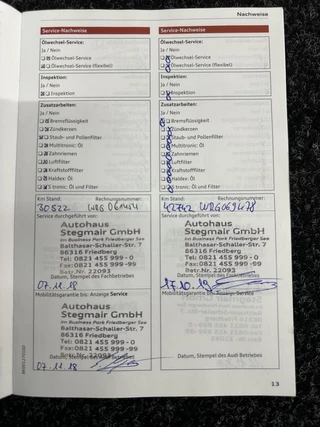 Nachweise
Service-Nachweise
Ölwechsel-Service:
Ja / Nein
Ölwechsel-Service
Ölwechsel-Service (flexibel)
Inspektion:
Ja / Nein
Inspektion
Zusatzarbeiten:
Ja / Nein
Bremsflüssigkeit
Zündkerzen
Staub- und Pollenfilter
Multitronic: Öl
Zahnriemen
Luftfilter
Kraftstofffilter
Haldex: Öl
S tronic: Öl und Filter
Km Stand: Rechnungsnummer:
30522
Service durchgeführt von:
Autohaus
Stegmair GmbH
im Business Park Friedberger See
Balthasar-Schaller-Str. 7
86316 Friedberg
Tel: 0821 455 999 - 0
Fax: 0821 455 999 -99
Betr.Nr. 22093
Datum, Stempel des Fachbetriebes
07.11.18
Mobilitätsgarantie bis: Anzeige Service
Autohaus
Stegmair GmbH
im Business Park Friedberger See
Balthasar-Schaller-Str. 7
86316 Friedberg
Tel: 0821 455 999 - 0
Fax: 0821 455 999 -99
Betr.Nr. 22093
Datum, Stempel des Audi Betriebes
07.11.18
Service-Nachweise
Ölwechsel-Service:
Ja / Nein
Ölwechsel-Service
Ölwechsel-Service (flexibel)
Inspektion:
Ja / Nein
Inspektion
Zusatzarbeiten:
Ja / Nein
Bremsflüssigkeit
Zündkerzen
Staub- und Pollenfilter
Multitronic: Öl
Zahnriemen
Luftfilter
Kraftstofffilter
Haldex: Öl
S tronic: Öl und Filter
Km Stand: Rechnungsnummer:
42762 WRG069478
Service durchgeführt von:
Autohaus
Stegmair GmbH
im Business Park Friedberger See
Balthasar-Schaller-Str. 7
86316 Friedberg
Tel: 0821 455 999 - 0
Fax: 0821 455 999 -99
Betr.Nr. 22093
Datum, Stempel des Fachbetriebes
17.10.19
Mobilitätsgarantie bis: Anzeige Service
Datum, Stempel des Audi Betriebes
13